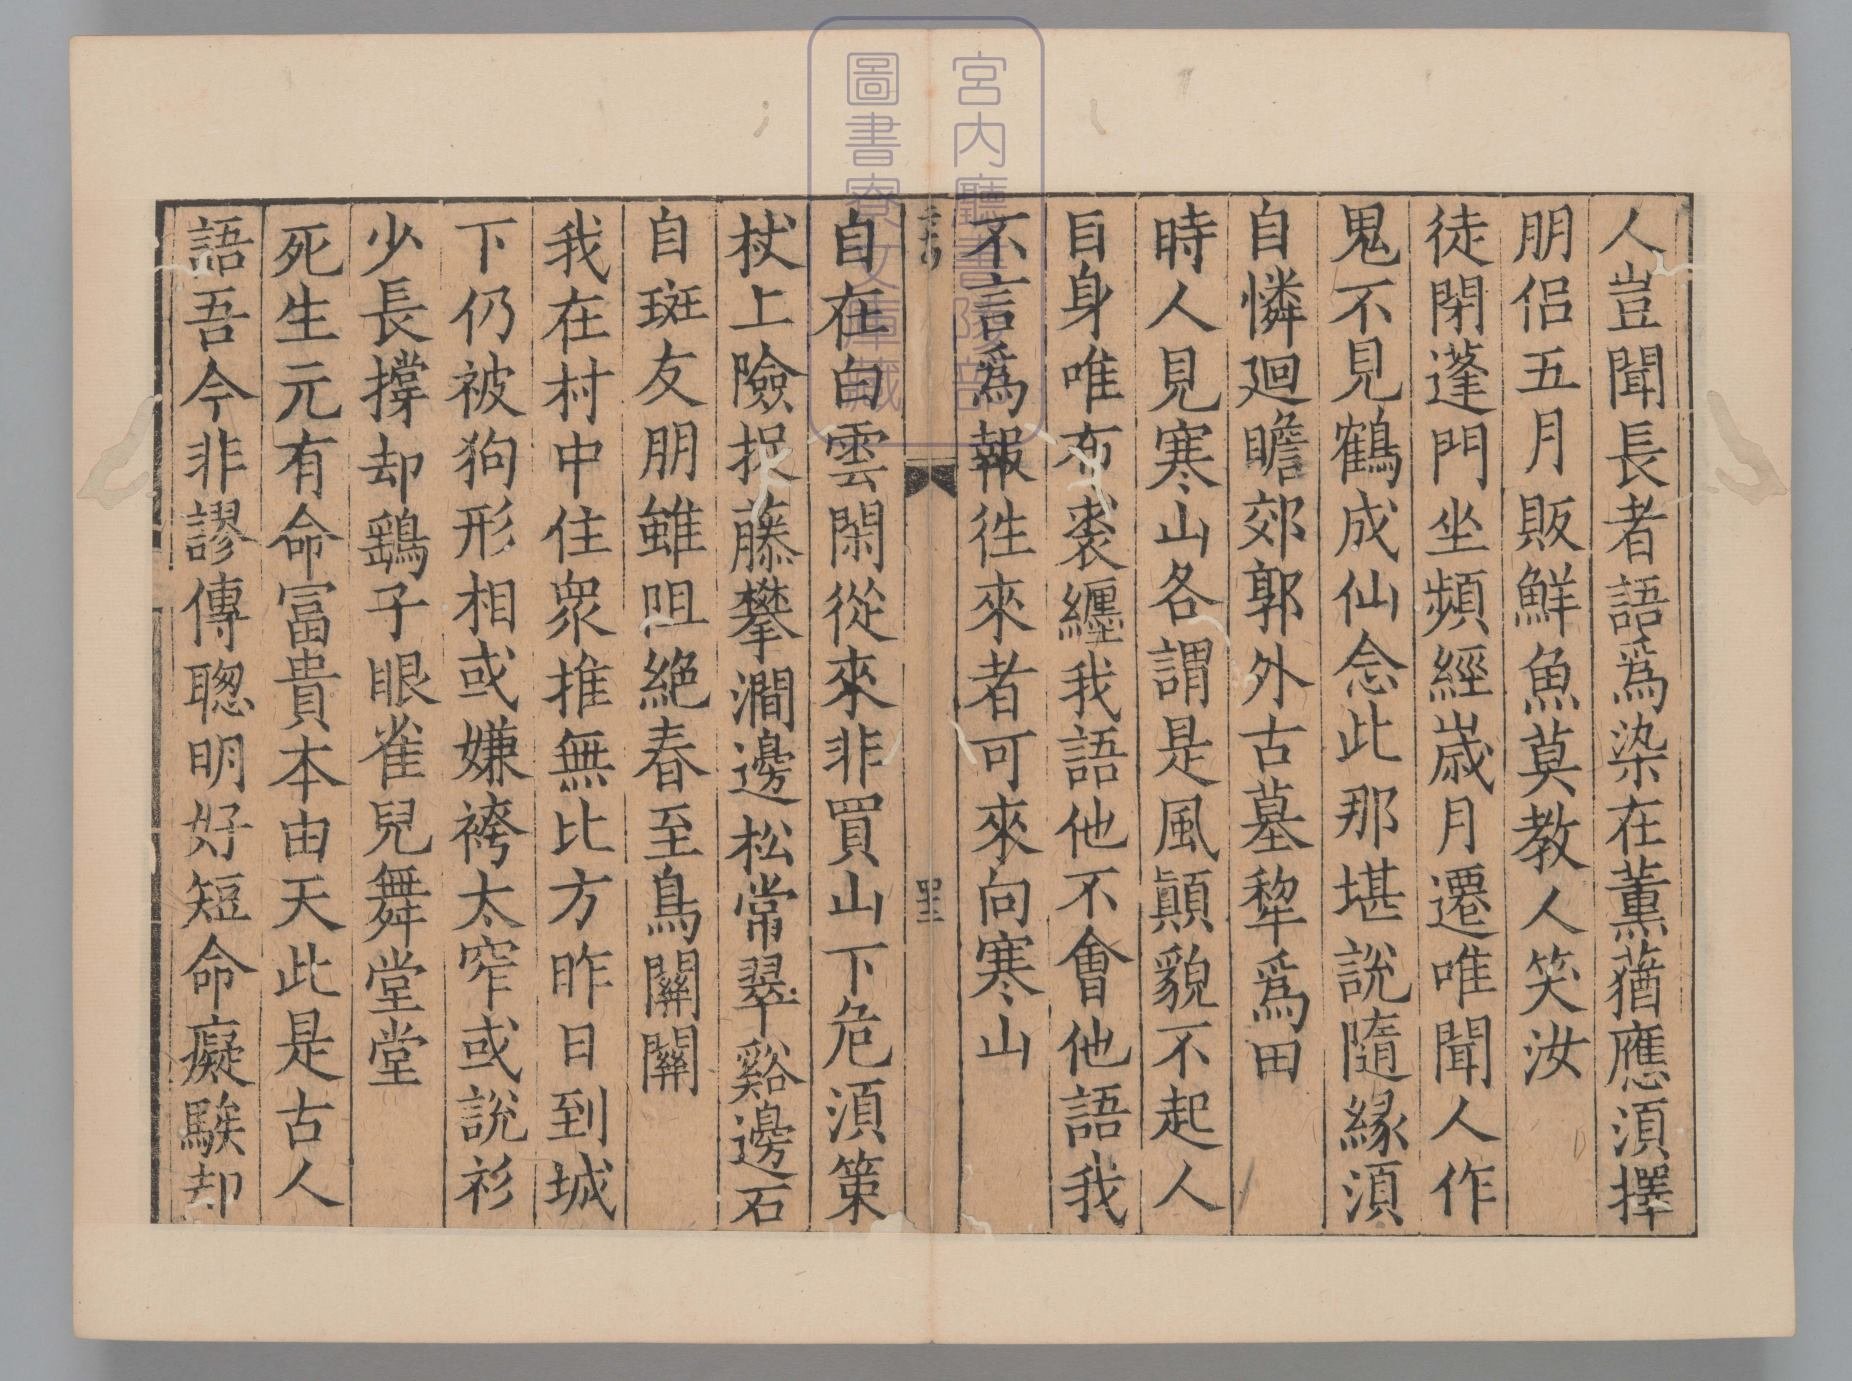 人豈聞長者語爲染在薰蕕應湏擇
朋侣五月販鮮魚莫教人笑汝
徒閉蓬門坐頻經歲月遷唯聞人作
鬼不見鶴成仙念此那堪說隨緣湏
自憐廻瞻郊郭外古墓犂爲田
時人見寒山各謂是風顛貌不起人
目身唯布裘纏我語他不會他語我
不言爲報徃來者可來向寒山
自在白雲閑從來非買山下危湏策
杖上險捉藤攀澗邊松常翠谿邊石
自斑友朋雖阻絶春至鳥關關
我在村中住衆推無比方昨日到城
下仍被狗形相或嫌袴太窄或說衫
少長撑却鷂子眼雀兒舞堂堂
死生元有命富貴本由天此是古人
語吾今非謬傳聦明好短命癡騃却
宮内廳書陵部
圖書寮文庫藏